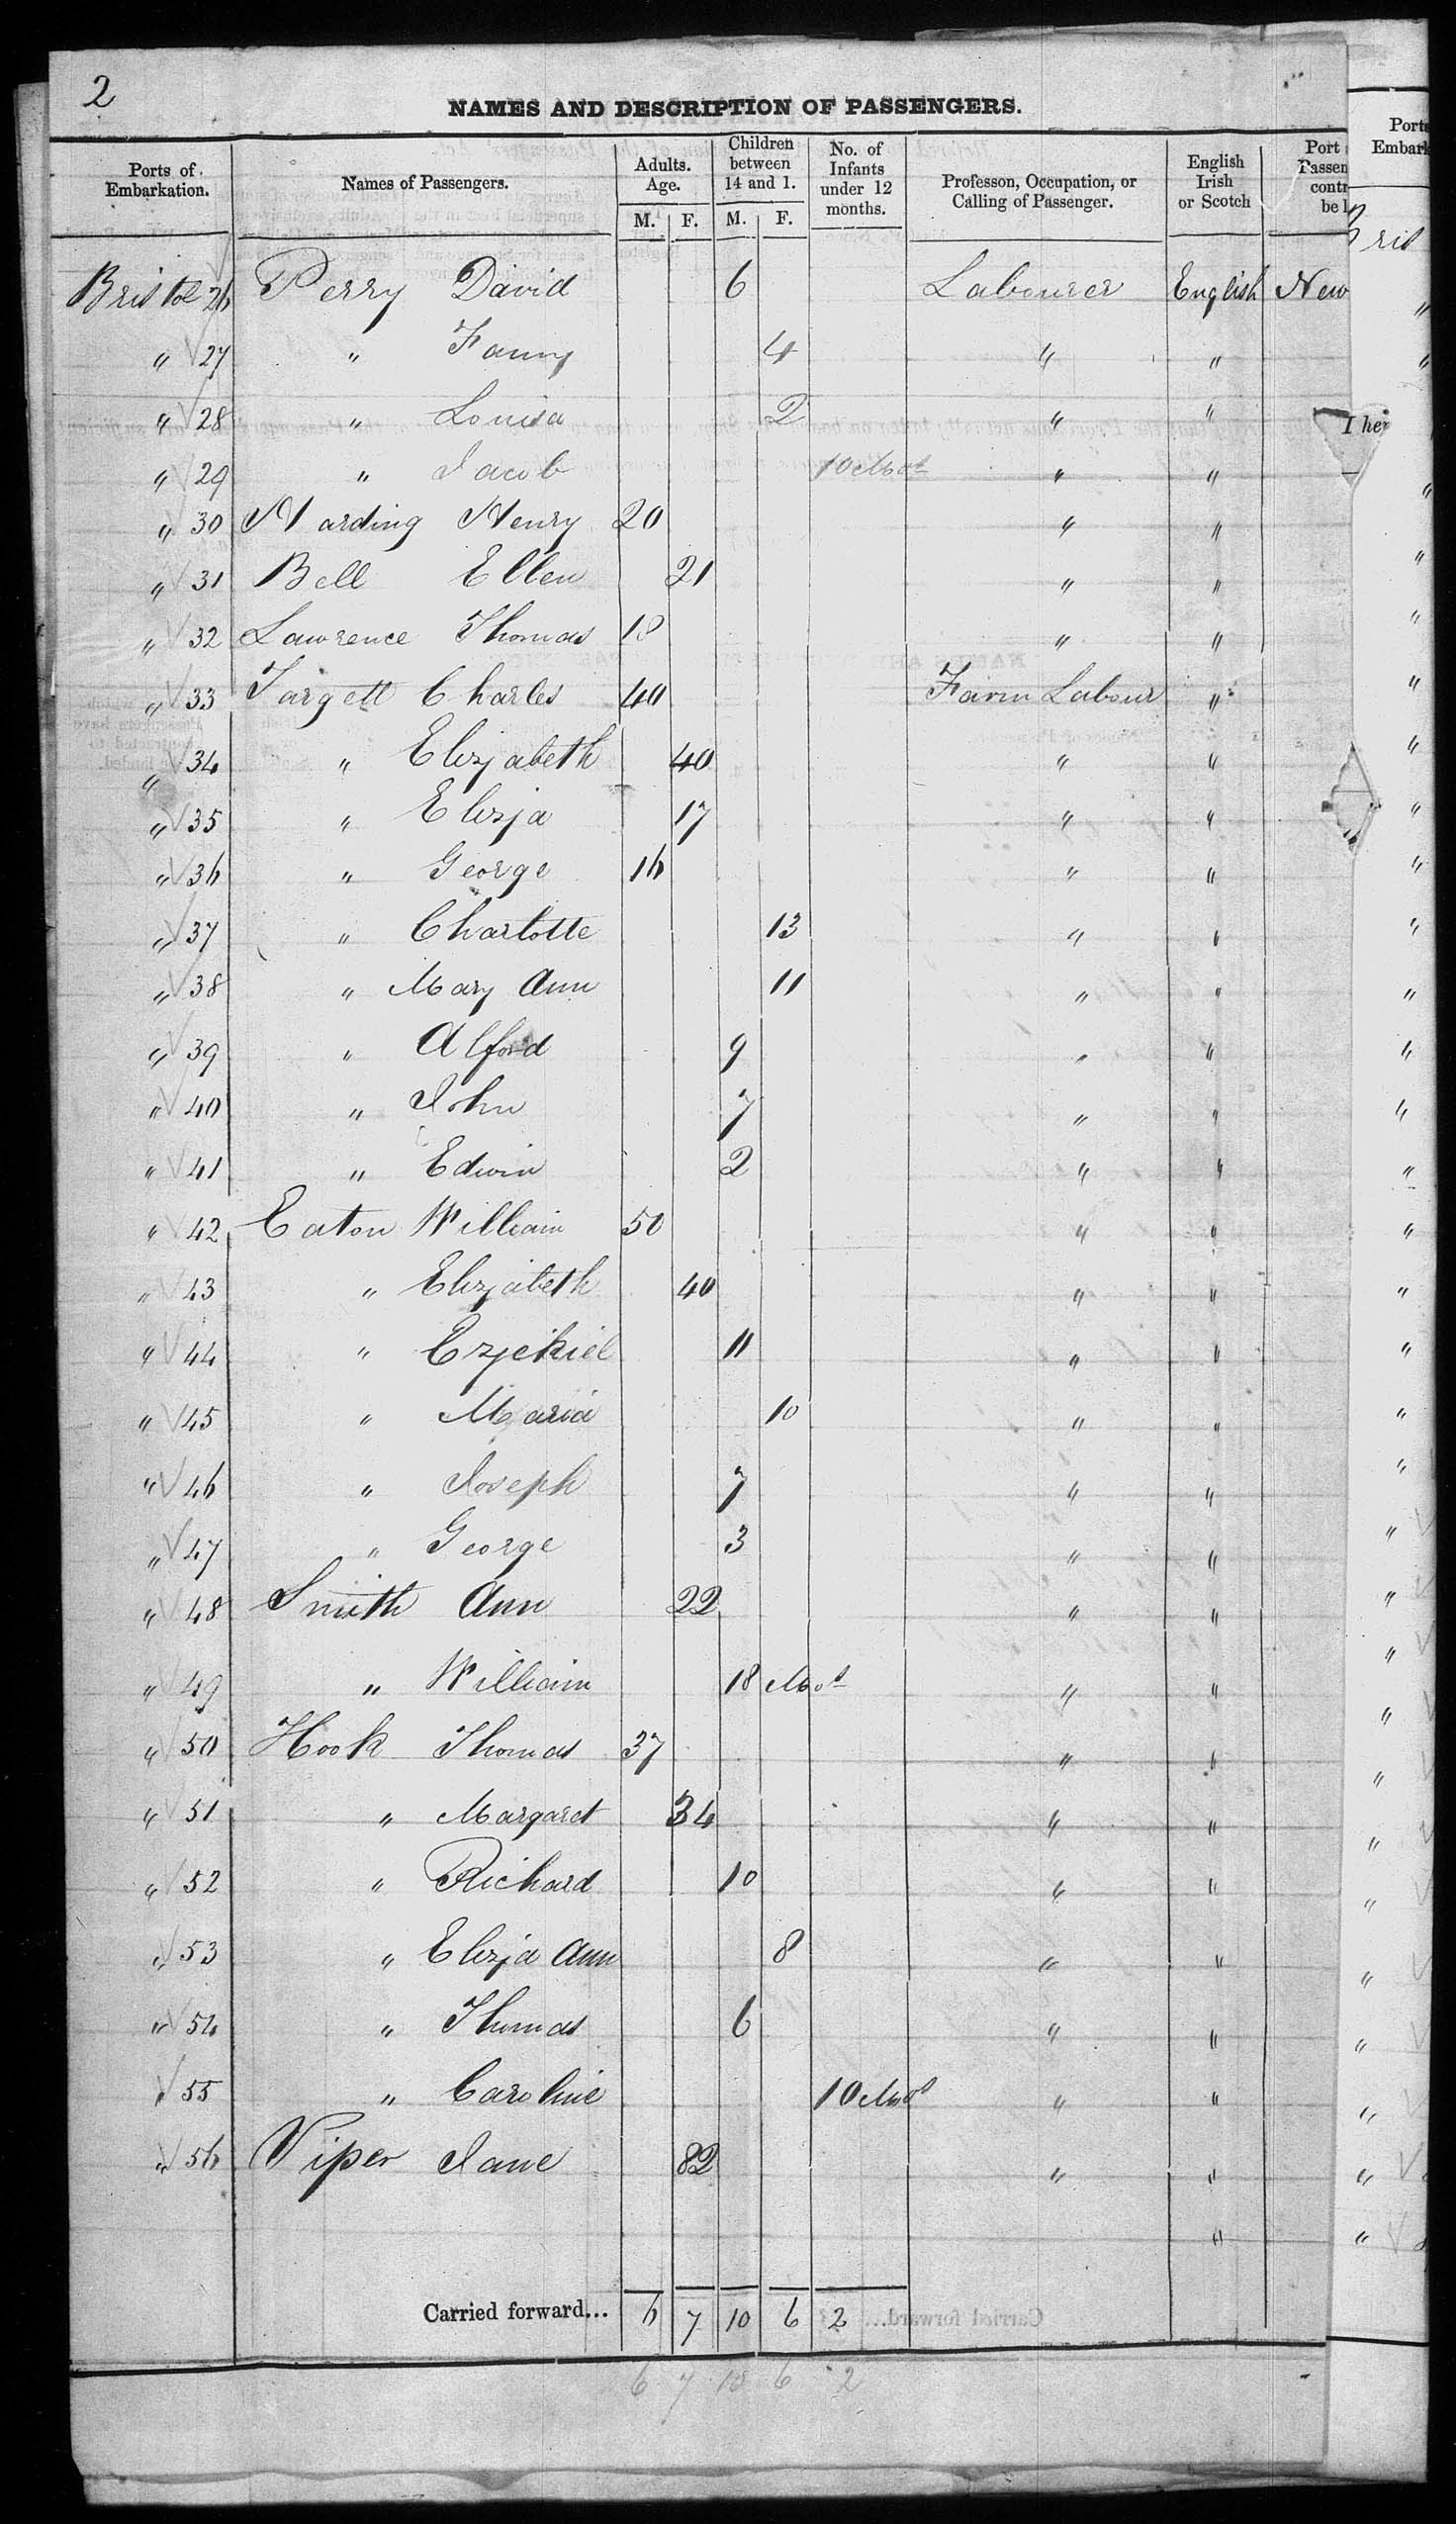 2
NAMES AND DESCRIPTION OF PASSENGERS.
Ports of Embarkation. Names of Passengers. Adults. Age. M. F. Children between 14 and 1. M. F. No. of Infants under 12 months. Professon, Occupation, or Calling of Passenger. English Irish or Scotch Port Passen contr be l
Bristol 26 Perry David 6 Labourer English New
" 27 " Fanny 4 " "
" 28 " Louisa 2 " "
" 29 " Jacob 10 Mos " "
" 30 Harding Henry 20 " "
" 31 Bell Ellen 21 " "
" 32 Lawrence Thomas 18 " "
" 33 Targett Charles 40 Farm Labour "
" 34 " Elizabeth 40 " "
" 35 " Eliza 17 " "
" 36 " George 16 " "
" 37 " Charlotte 13 " "
" 38 " Mary Ann 11 " "
" 39 " Alford 9 " "
" 40 " John 7 " "
" 41 " Edwin 2 " "
" 42 Eaton William 50 " "
" 43 " Elizabeth 40 " "
" 44 " Ezekiel 11 " "
" 45 " Maria 10 " "
" 46 " Joseph 7 " "
" 47 " George 3 " "
" 48 Smith Ann 22 " "
" 49 " William 18 Mos " "
" 50 Hook Thomas 37 " "
" 51 " Margaret 34 " "
" 52 " Richard 10 " "
" 53 " Eliza Ann 8 " "
" 54 " Thomas 6 " "
" 55 " Caroline 10 Mos " "
" 56 Viper Jane 82 " "
"
Carried forward... 6 7 10 6 2
6 7 10 6 2
Ports Embark
Bris
I her